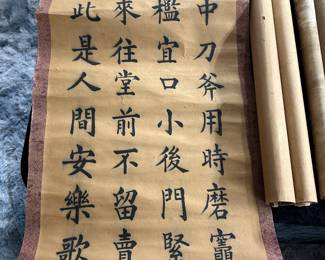 中刀斧用時磨竈
檻宜口小後門緊
來往堂前不留賣
此是人間安樂歌